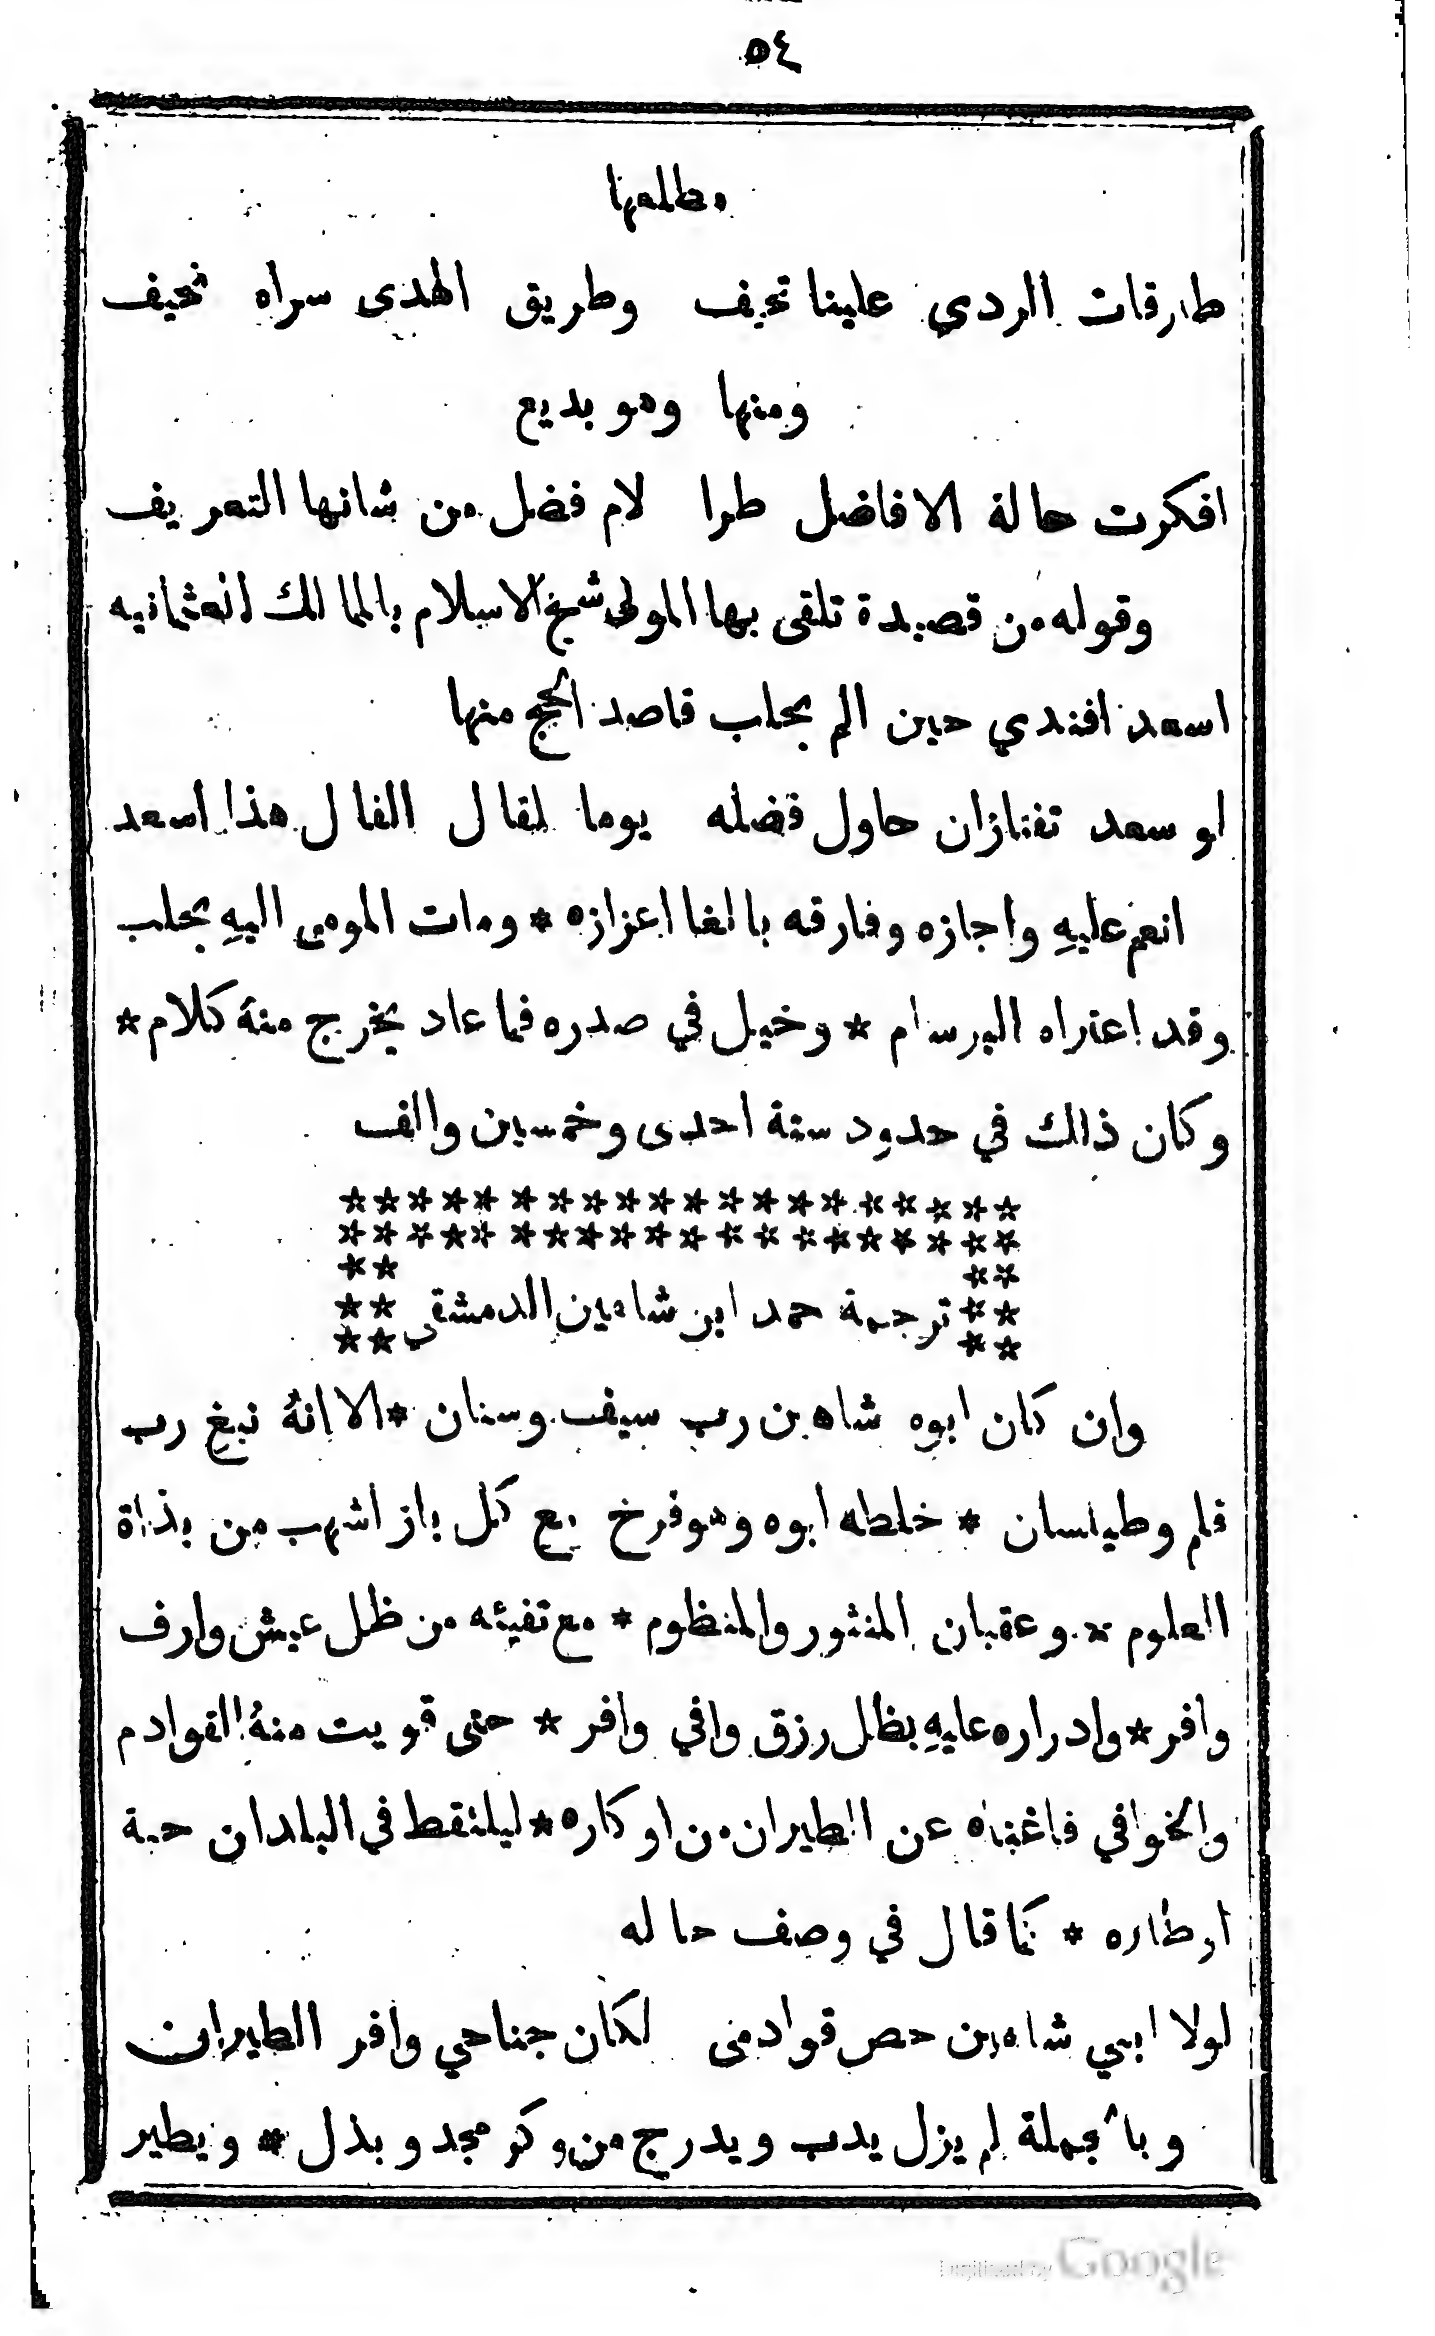 ٥٤
مطلعها
طارقات الردي علينا تحيف وطريق الهدى سراه تخيف
ومنها وهو بديع
افكرت حالة الافاضل طرا لام فضل من شانها التعريف
وقوله من قصيدة تلقى بها المولى شيخ الاسلام بالممالك العثمانيه
اسعد افندي حين الم بحلب قاصد الحج منها
لو سعد تفتازان حاول فضله يوما لقال الفال هذا اسعد
انعم عليهِ واجازه وفارقه بالغا اعزازه * ومات المومى اليهِ بحلب
وقد اعتراه البرسام * وخيل في صدره فما عاد يخرج منهُ كلام *
وكان ذالك في حدود سنة احدى وخمسين والف
ترجمة حمد ابن شاهين الدمشقي
وان كان ابوه شاهين رب سيف وسنان * الا انهُ نبغ رب
قلم وطيلسان * خلطه ابوه وهو فرخ مع كل باز اشهب من بذاة
العلوم * وعقبان المنثور والمنظوم * مع تفيئه من ظل عيش وارف
وافر * وادراره عليهِ بظل رزق وافي وافر * حتى قويت منهُ القوادم
والخوافي فاغتاه عن الطيران من اوكاره * ليلتقط في البلدان حبة
اوطاره * كما قال في وصف حاله
لولا ابي شاهين حص قوادمى لكان جناحي وافر الطيران
وبالجملة لم يزل يدب ويدرج من وكر مجد وبذل * ويطير
Digitized by Google